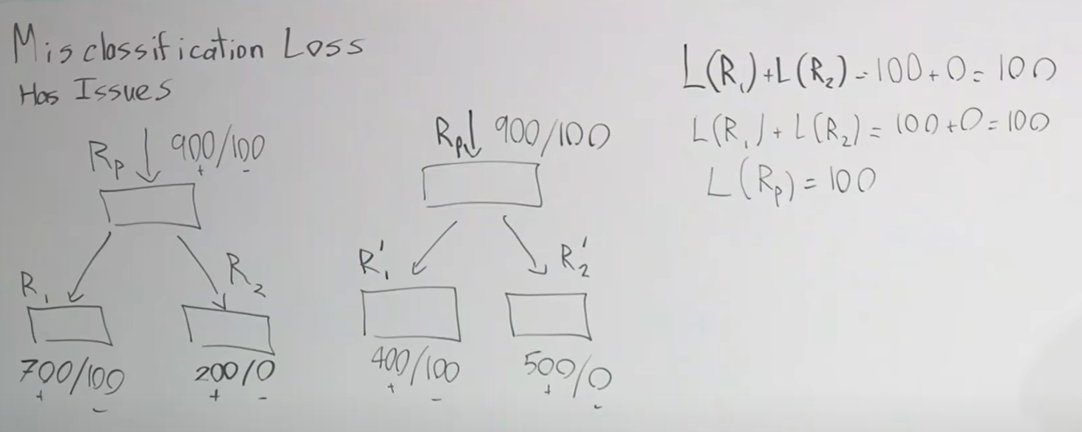 Misclassification Loss
Has Issues
Rp 900/100
+ -
R1 R2
700/100 200/0
+ - + -
Rp 900/100
R'1 R'2
400/100 500/0
+ - + -
L(R1)+L(R2) = 100+0=100
L(R1)+L(R2)=100+0=100
L(Rp)=100